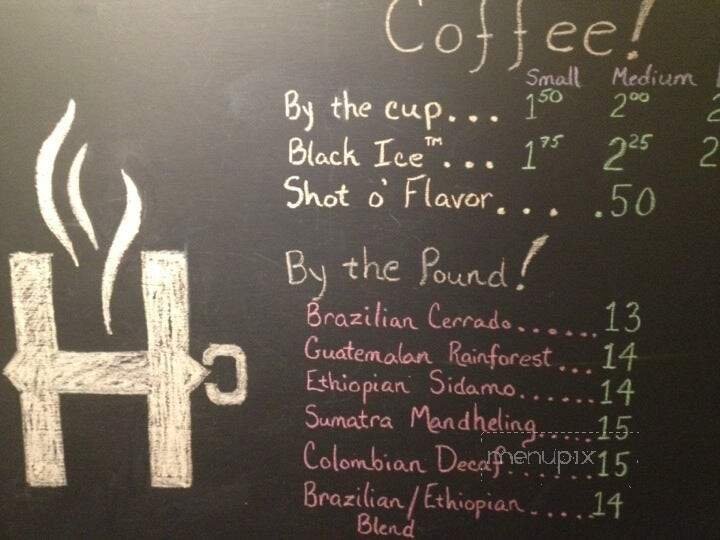 Coffee!
Small Medium
By the cup... 1.50 2.00 2
Black Ice™... 1.75 2.25 2
Shot o' Flavor... .50
By the Pound!
Brazilian Cerrado....... 13
Guatemalan Rainforest... 14
Ethiopian Sidamo...... 14
Sumatra Mandheling..... 15
Colombian Decaf...... 15
menupix
Brazilian/Ethiopian..... 14
Blend
H